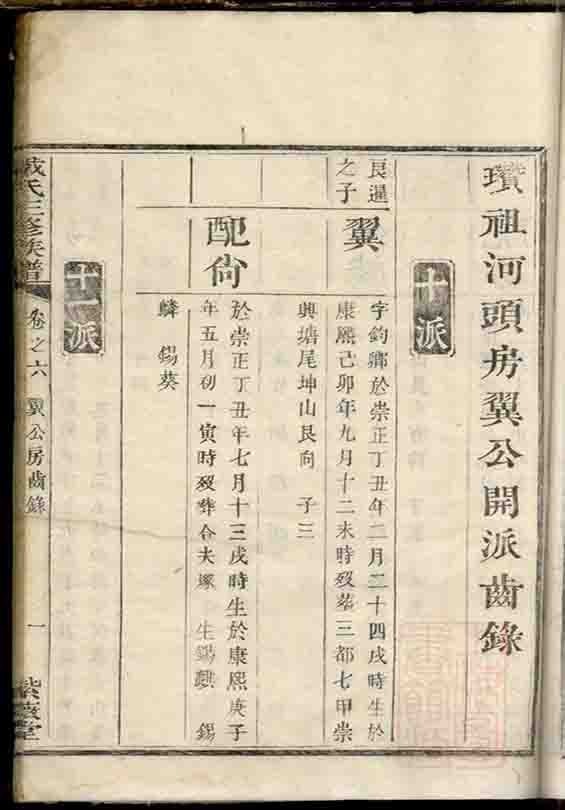 瓚祖河頭房翼公開派齒錄
十派
艮暹
之子
翼
字鈞鄉於崇正丁丑年二月二十四戌時生於
康熙己卯年九月十二未時歿葬三都七甲崇
興塘尾坤山艮向 子三
配尙
於崇正丁丑年七月十三戌時生於康熙庚子
年五月初一寅時歿葬合夫塚 生錫麒 錫
麟 錫葵
十一派
戴氏三修族譜
卷之六
翼公房齒錄
一
紫薇堂